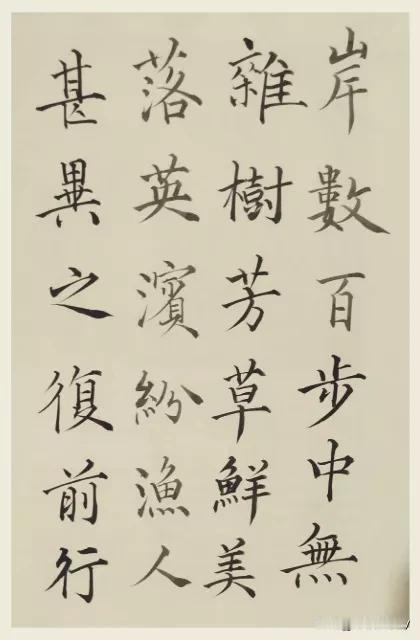 岸數百步中無
雜樹芳草鮮美
落英濱紛漁人
甚異之復前行